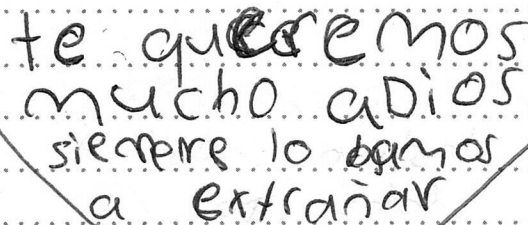 te queremos
mucho aDios
siempre lo bamos
a extrañar